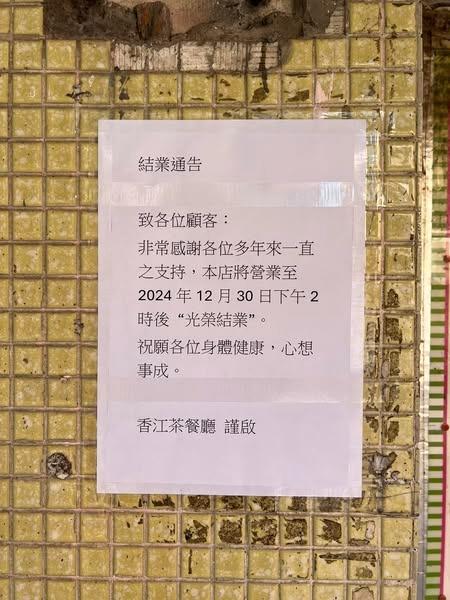 結業通告
致各位顧客：
非常感謝各位多年來一直
之支持，本店將營業至
2024 年 12 月 30 日下午 2
時後 “光榮結業”。
祝願各位身體健康，心想
事成。
香江茶餐廳 謹啟